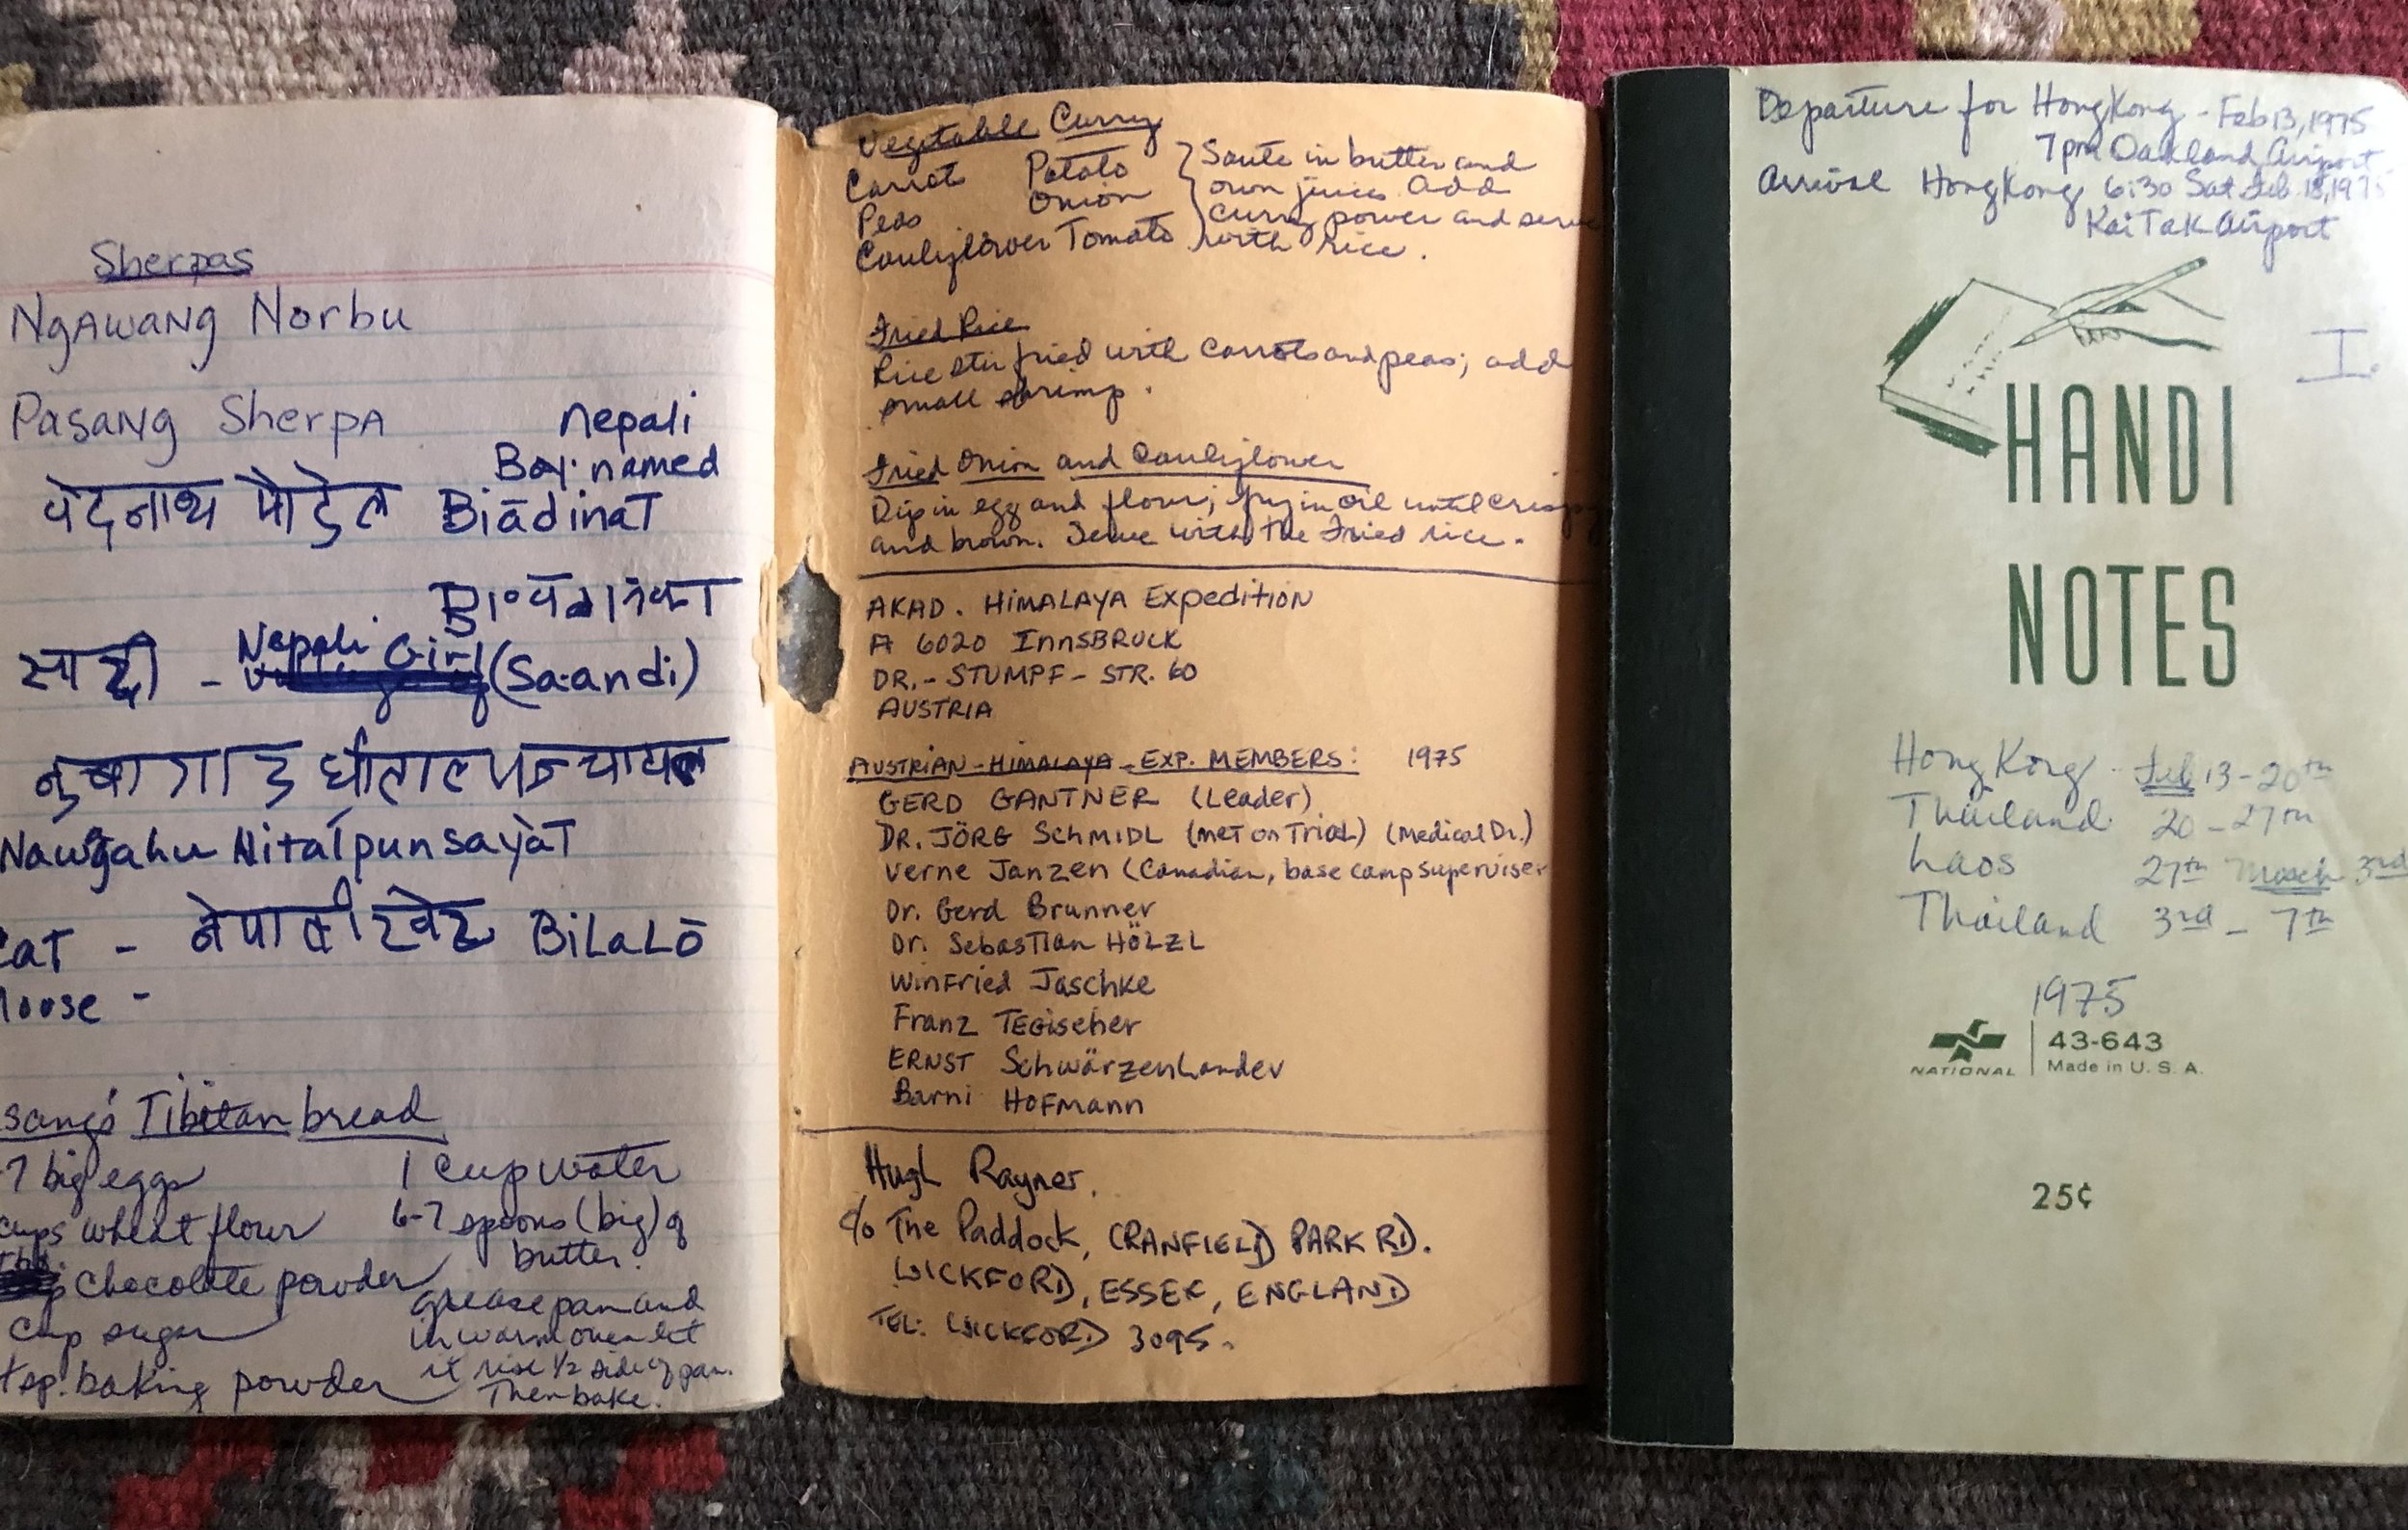 Sherpas
NgAwaNg Norbu
PasaNg SherpA
Nepali
Boy named
वेदनाथ पौडेल Biādinat
साद्दी - Nepali Girl (Sa-andi)
Nawgahu Hitalpunsayat
Cat - नेपाली BiLaLō
sang's Tibetan bread
7 big eggs
1 cup water
cups wheat flour
6-7 spoons (big) of
butter.
chocolate powder
cup sugar
tsp. baking powder
grease pan and
in warm oven let
it rise 1/2 side of pan.
Then bake.
Vegetable Curry
Carrot Potato
Peas Onion
Cauliflower Tomato
Saute in butter and
own juices add
curry power and serve
with rice.
Fried Rice
Rice stir fried with carrots and peas; add
small shrimp.
Fried Onion and Cauliflower
Dip in egg and flour; fry in oil until crispy
and brown. Serve with the Fried rice.
AKAD. HIMALAYA EXPEDITION
A 6020 INNSBRUCK
DR.-STUMPF-STR. 60
AUSTRIA
AUSTRIAN-HIMALAYA-EXP. MEMBERS: 1975
GERD GANTNER (Leader)
DR. JÖRG SCHMIDL (met on Trial) (Medical Dr.)
Verne Janzen (Canadian, base camp superviser
Dr. Gerd Brunner
Dr. Sebastian HÖLZL
Winfried Jaschke
Franz TEGischer
ERNST Schwärzenlander
Barni HOFmann
Hugh Rayner.
c/o The Paddock, CRANFIELD PARK RD.
WICKFORD, ESSEX, ENGLAND
TEL: WICKFORD 3095.
Departure for HongKong - Feb 13, 1975
7pm Oakland Airport
Arrival HongKong 6:30 Sat Feb. 1975
KaiTak Airport
I.
HANDI
NOTES
Hong Kong - Feb 13-20th
Thailand 20-27th
Laos 27th March 3rd
Thailand 3rd - 7th
1975
NATIONAL
43-643
Made in U.S.A.
25¢